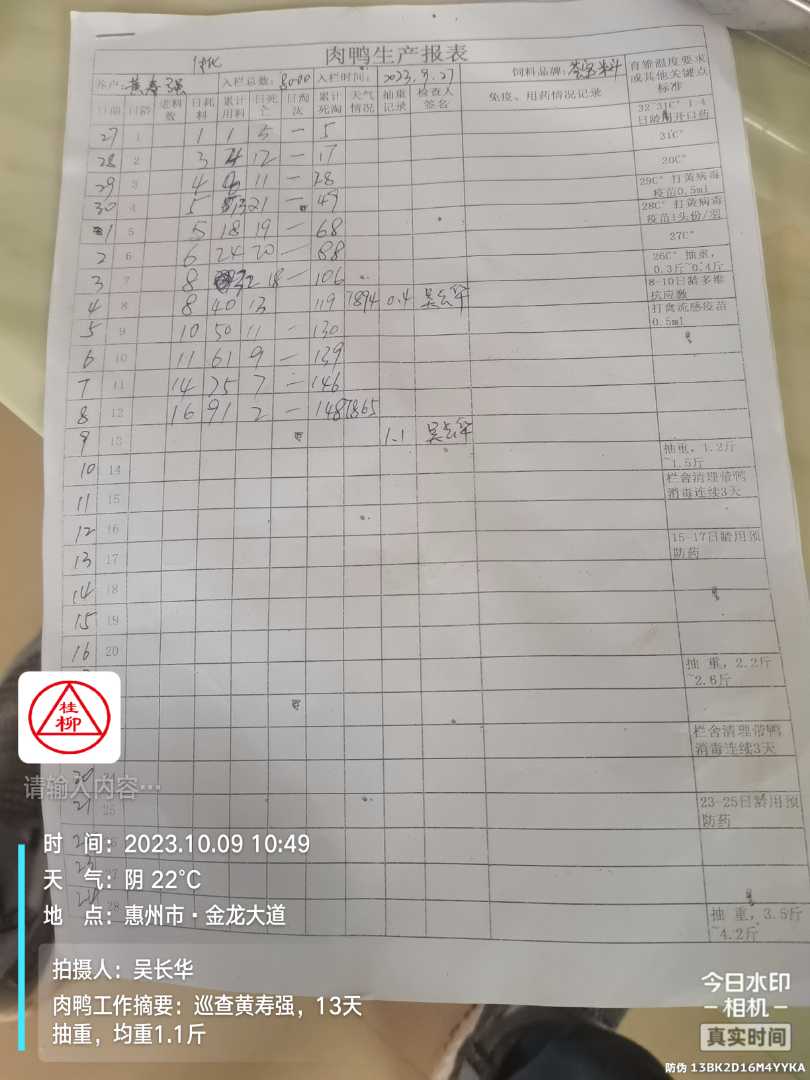 肉鸭生产报表
客户：黄寿强 入栏总数：8000 入栏时间：2023.9.27 饲料品牌： 育雏温度要求或其他关键点标准
日期 日龄 老料数 日耗料 累计用料 日死亡 日淘汰 累计死淘 天气情况 抽重记录 检查人签名 免疫、用药情况记录
27 1 1 1 5 一 5 32-31C° 1-4日龄用开口药
28 2 3 4 12 一 17 31C°
29 3 4 11 一 28 20C°
30 4 5 13 21 一 49 29C° 打黄病毒疫苗0.5ml
1 5 5 18 19 一 68 28C° 打黄病毒疫苗1头份/羽
2 6 6 24 20 一 88 27C°
3 7 8 32 18 一 106 26C° 抽重，0.3斤~0.4斤
4 8 8 40 13 119 7894 0.4 8-10日龄多维抗应激
5 9 10 50 11 一 130 打禽流感疫苗0.5ml
6 10 11 61 9 一 139
7 11 14 75 7 一 146
8 12 16 91 2 一 148 7865
9 13 1.1
10 14 抽重，1.2斤~1.5斤
11 15 栏舍清理带鸭消毒连续3天
12 16
13 17 15-17日龄用预防药
14 18
15 19
16 20
抽 重，2.2斤~2.6斤
栏舍清理带鸭消毒连续3天
21 25 23-25日龄用预防药
28 抽 重，3.5斤~4.2斤
桂柳
请输入内容…
时 间：2023.10.09 10:49
天 气：阴 22℃
地 点：惠州市·金龙大道
拍摄人：吴长华
肉鸭工作摘要：巡查黄寿强，13天
抽重，均重1.1斤
今日水印
相机
真实时间
防伪 13BK2D16M4YYKA